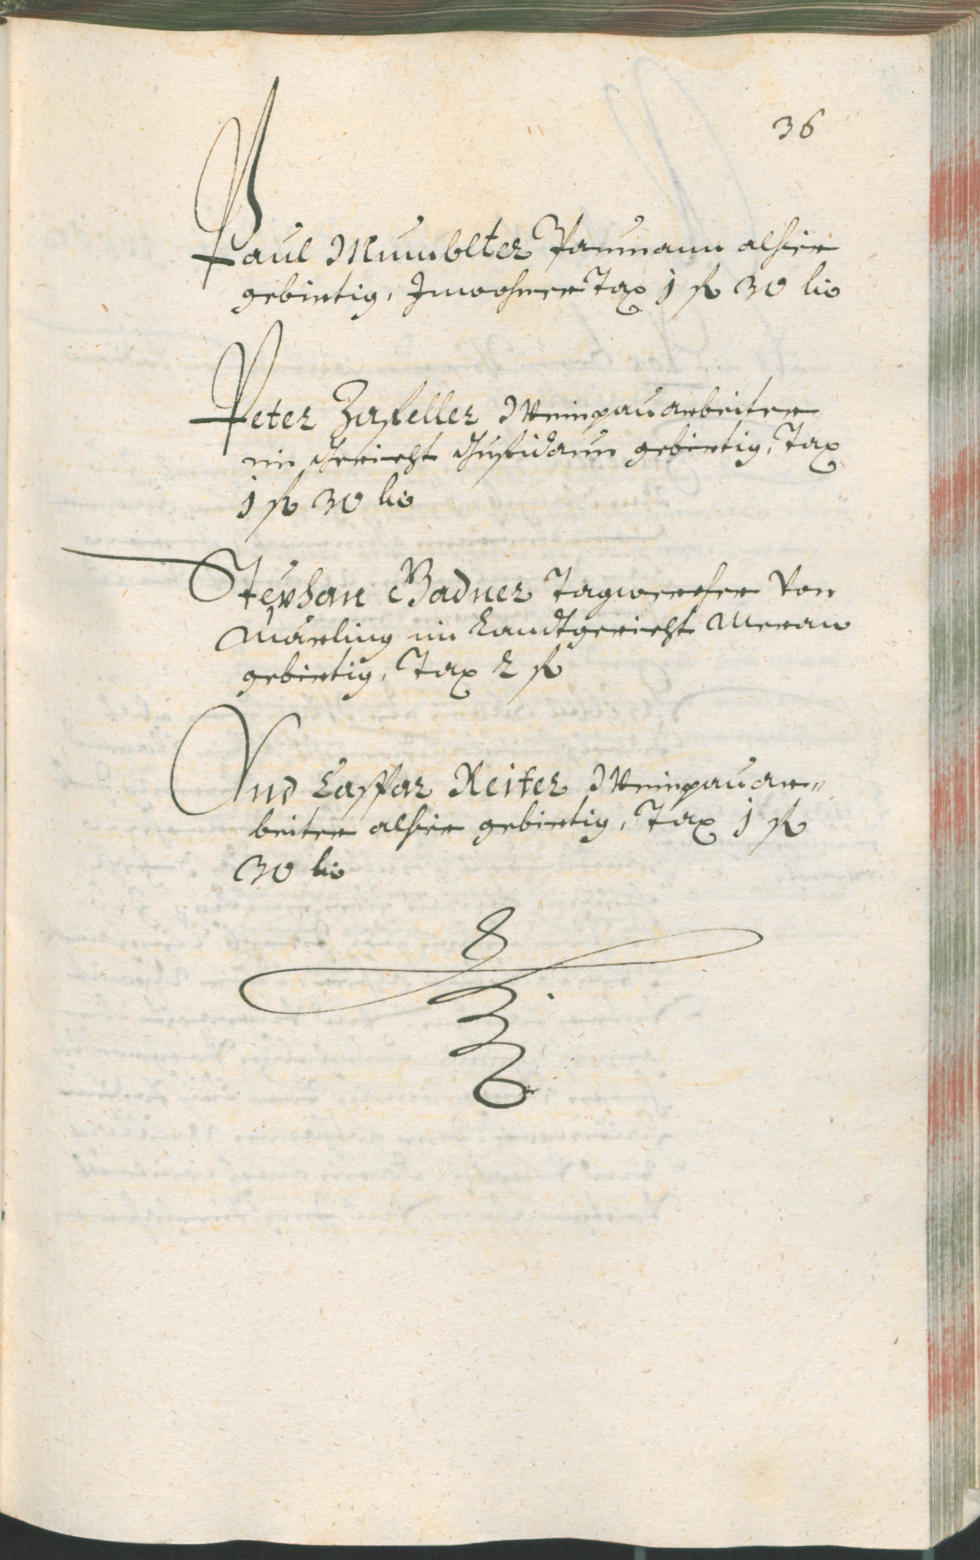 36
Paul Mumblter Paumann alhier
gebirtig, Inwohner Tax 1 fl 30 kr
Peter Zafeller Weinpauarbeiter
im Gericht Gufidaun gebirtig, Tax
1 fl 30 kr
Stephan Badner Tagwercher von
Märling im Landtgericht Meran
gebirtig, Tax 2 fl
Und Caspar Reiter Weinpauar⸗
beiter alhier gebirtig, Tax 1 fl
30 kr